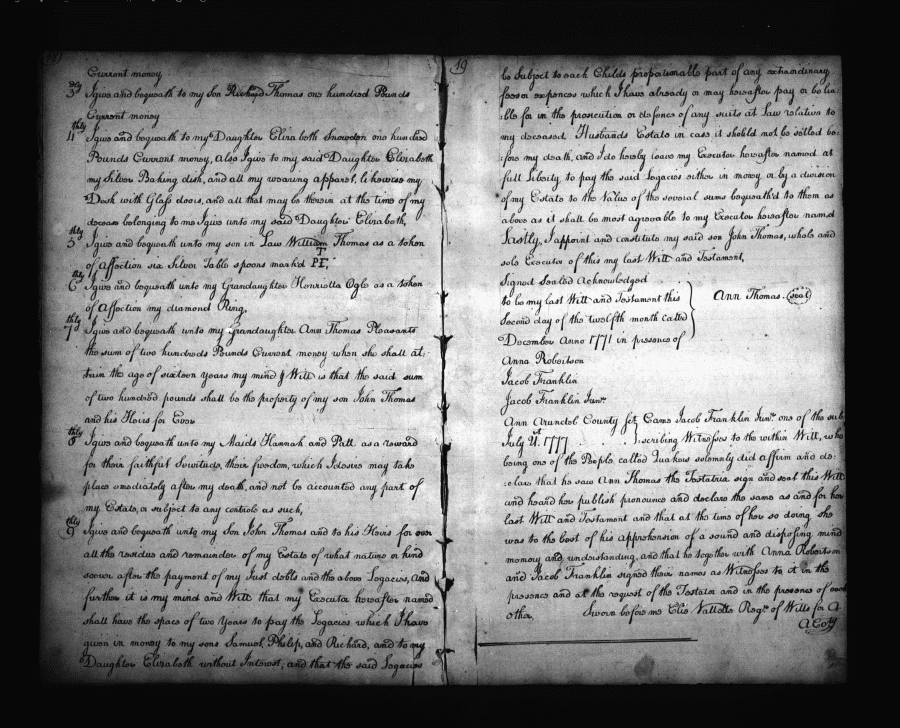 Current money
3dly I give and bequeath to my Son Richard Thomas one hundred Pounds
Current money
4thly I give and bequeath to my Daughter Elizabeth Snowden one hundred
Pounds Current money, also I give to my said Daughter Elizabeth
my Silver Baking dish, and all my wearing apparel, likewise my
Desk with Glass doors, and all that may be therein at the time of my
decease belonging to me I give unto my said Daughter Elizabeth,
5thly I give and bequeath unto my son in Law William Thomas as a token
of Affection six Silver Table spoons markd PTE,
6thly I give and bequeath unto my Grandaughter Henrietta Ogle as a token
of Affection my diamond Ring,
7thly I give and bequeath unto my Grandaughter Ann Thomas Pleasants
the sum of two hundred Pounds Current money when she shall at:
tain the age of sixteen years my mind & Will is that the said sum
of two hundred pounds shall be the property of my son John Thomas
and his Heirs for Ever
8thly I give and bequeath unto my Maids Hannah and Patt as a reward
for their faithful Servitude, their freedom, which I desire may take
place imediately after my death, and not be accounted any part of
my Estate, or subject to any controle as such,
9thly I give and bequeath unto my Son John Thomas and to his Heirs for ever
all the residue and remainder of my Estate of what nature or kind
soever after the payment of my Just debts and the above Legacies, and
further it is my mind and Will that my Executor hereafter named
shall have the space of two Years to pay the Legacies which I have
given in money to my sons Samuel, Philip, and Richard, and to my
Daughter Elizabeth without Interest, and that the said Legacies
19
be Subject to each Childs proportionable part of any extraordinary
expences which I have already or may hereafter pay or be lia:
:ble for in the prosecution or defence of any suits at Law relative to
my deceased Husbands Estate in case it should not be setled be:
:fore my death, and I do hereby leave my Executor hereafter named at
full Liberty to pay the said Legacies either in money or by a division
of my Estate to the Value of the several sums bequeath'd to them as
above as it shall be most agreeable to my Executor hereafter named
Lastly, I appoint and constitute my said son John Thomas, whole and
sole Executor of this my last Will and Testament,
Signed Sealed Acknowledged
to be my last Will and Testament this
Second day of the twelfth month called
December Anno 1771 in presence of
Ann Thomas. (seal)
Anna Robertson
Jacob Franklin
Jacob Franklin Junr.
Ann Arundel County Sct Came Jacob Franklin Junr. one of the sub:
July 21st. 1777 :scribing Witnesses to the within Will, who
being one of the People called Quakers solemnly did affirm and de:
:clare that he saw Ann Thomas the Testatrix sign and seal this Will
and heard her publish pronounce and declare the same as and for her
last Will and Testament and that at the time of her so doing she
was to the best of his apprehension of a sound and disposing mind
memory and understanding, and that he together with Anna Robertson
and Jacob Franklin signed their names as Witnesses to it in the
presence and at the request of the Testator and in the presence of each
other. Sworn before me Elie Vallette Regr. of Wills for A
A Coty